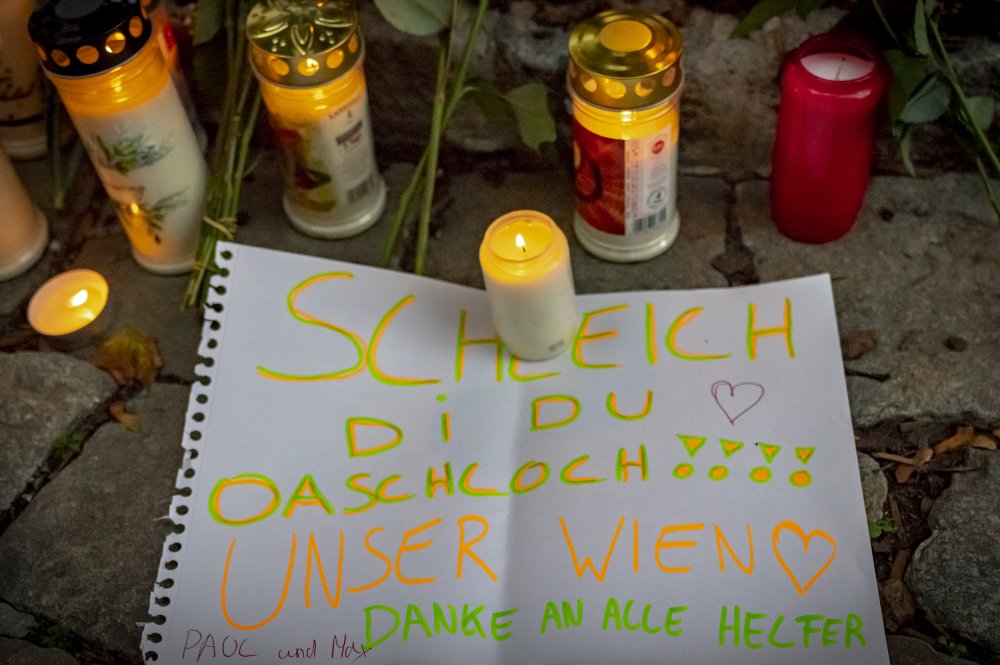 SCHLEICH
Di DU
OASCHLOCH !!!!
UNSER WIEN
DANKE AN ALLE HELFER
PAUL und Max